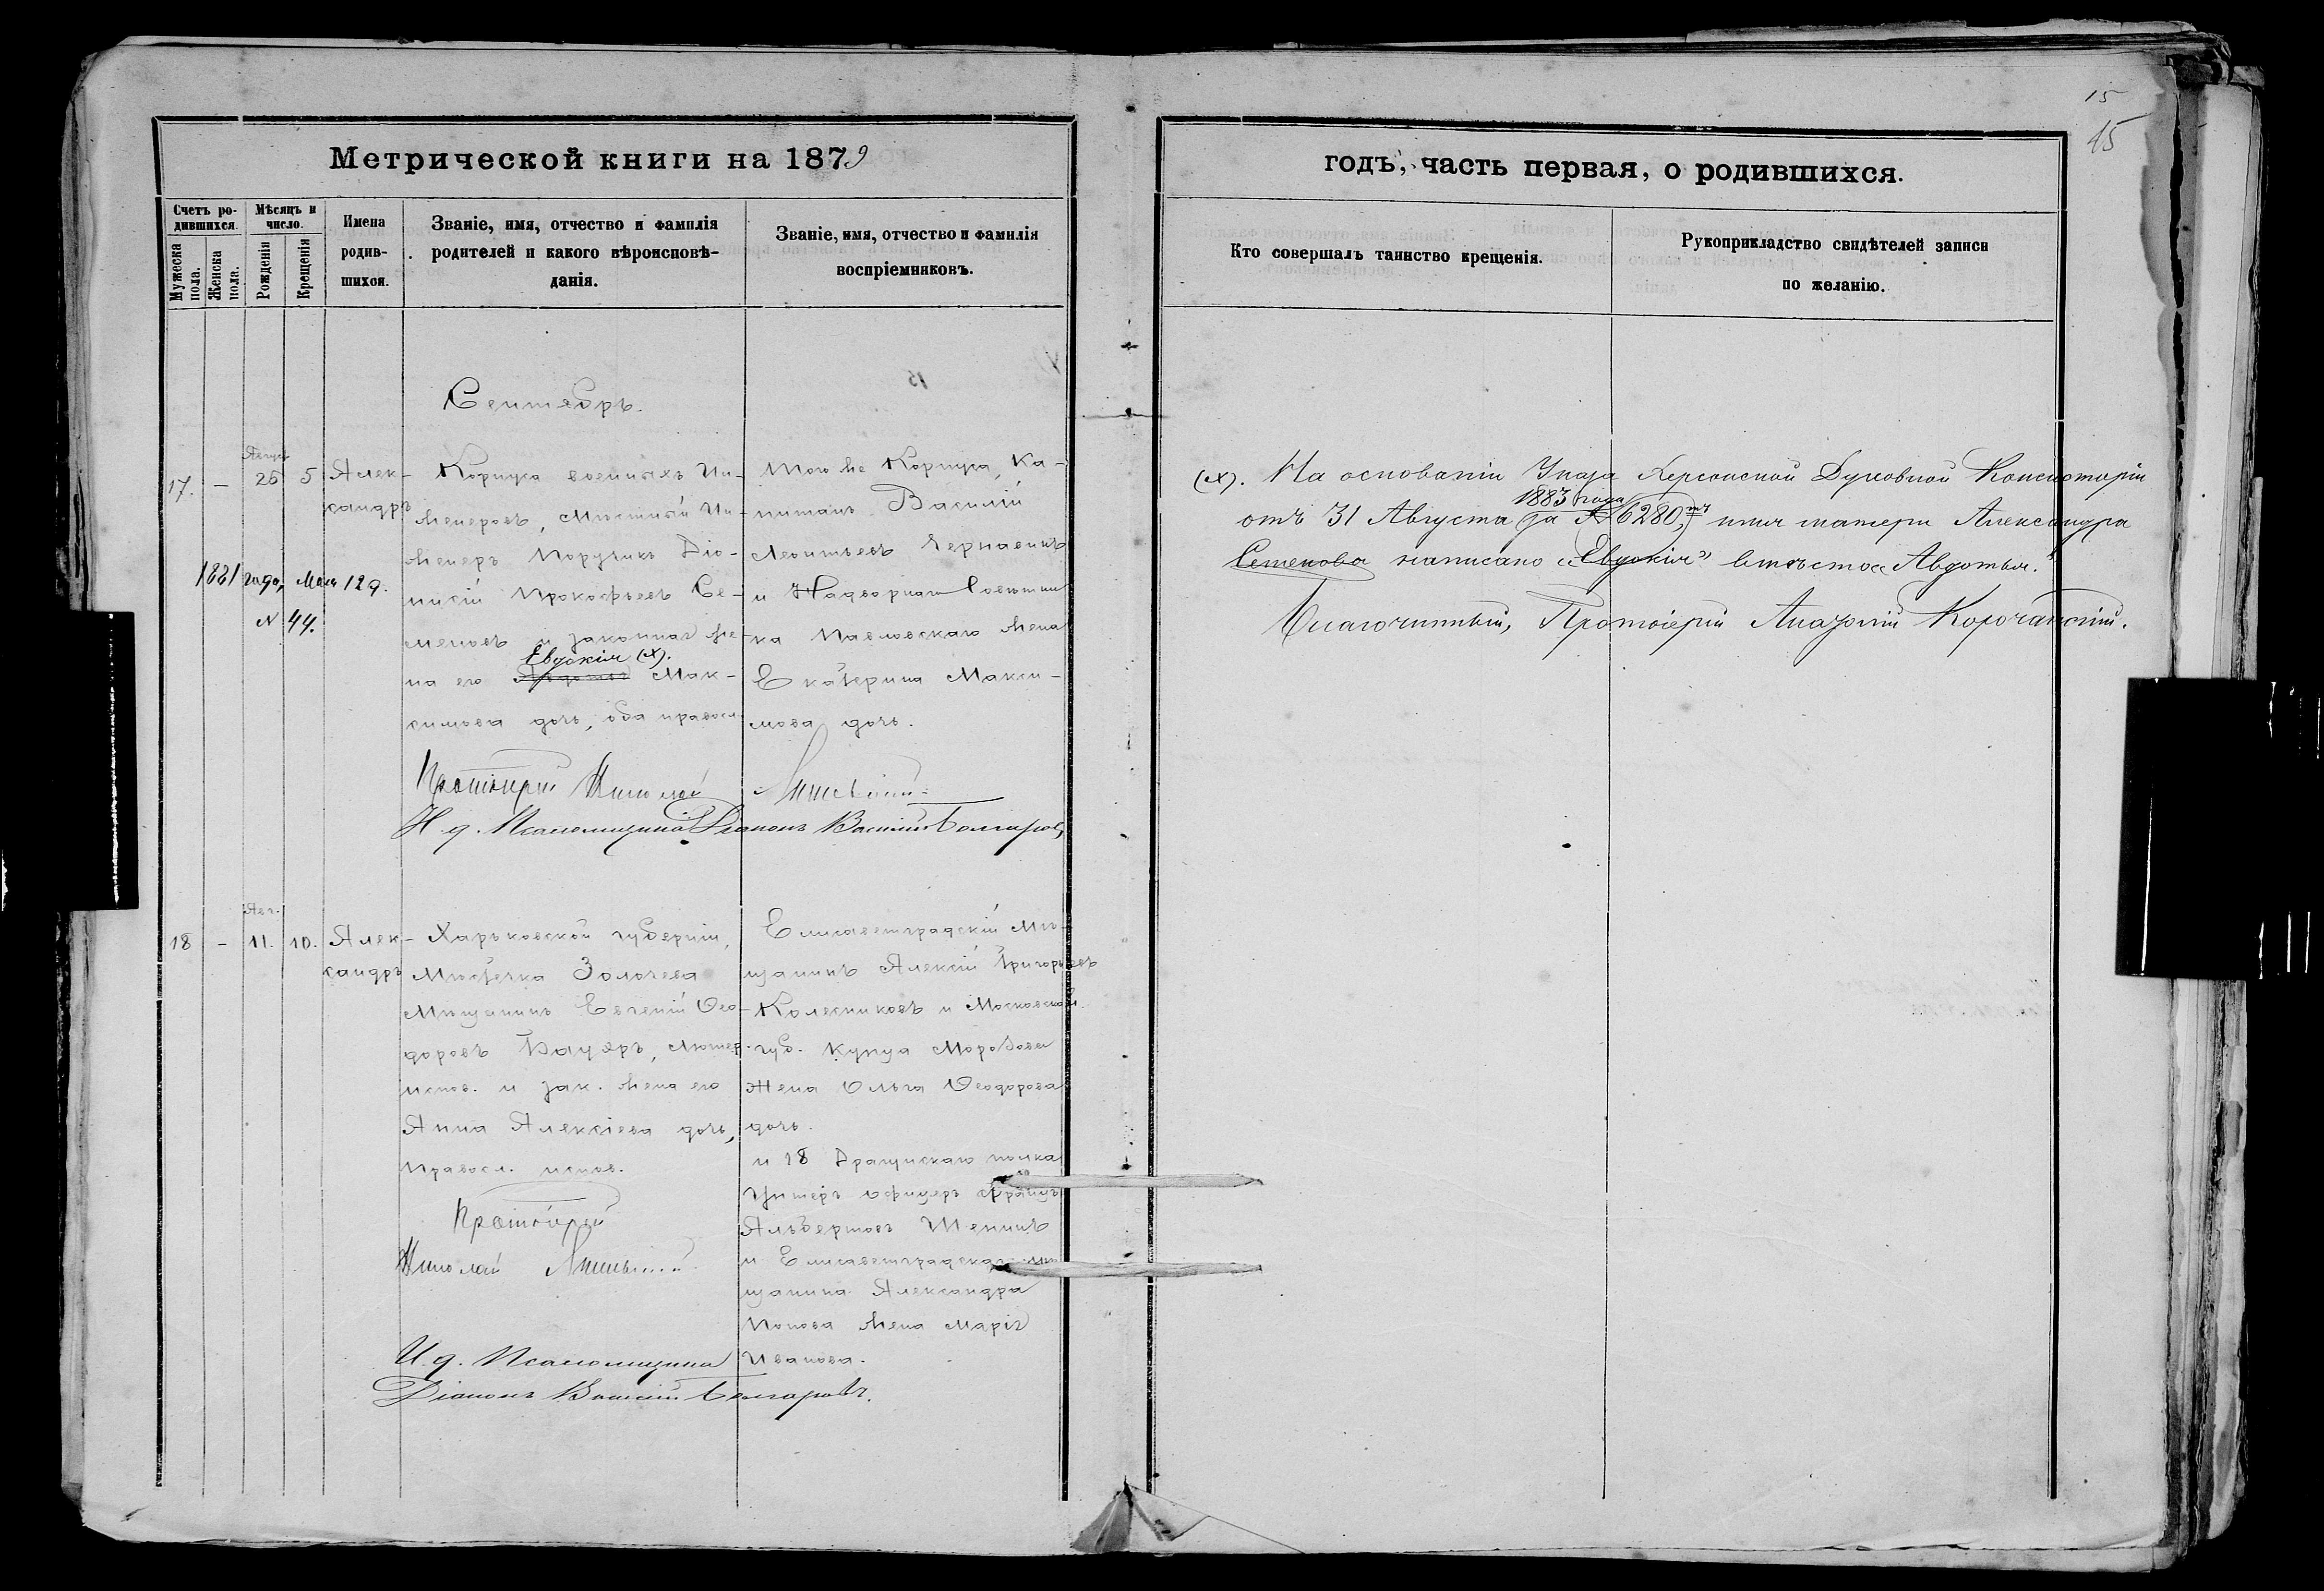 15
15
Метрической книги на 1879
годъ, часть первая, о родившихся.
Счетъ родившихся.
Мужеска пола.
Женска пола.
Мѣсяцъ и число.
Рожденія
Крещенія
Имена родившихся.
Званіе, имя, отчество и фамилія
родителей и какого вѣроисповѣ-
данія.
Званіе, имя, отчество и фамилія
воспріемниковъ.
Кто совершалъ таинство крещенія.
Рукоприкладство свидѣтелей записи
по желанію.
Сентябрь.
17. – Авгус. 26 5 Алек-
сандръ
Корпуса военныхъ Ин-
женеровъ, Мѣстный Ин-
женеръ Поручикъ Діо-
нисій Прокофьевъ Се-
меновъ и законная же-
Евдокія (х).
на его Авдотья Мак-
симова дочь, оба правосл.
Того же Корпуса, Ка-
питанъ Василій
Леонтьевъ Чернавинъ
и Надворнаго Совѣтни
ка Павловскаго жена
Екатерина Макси-
мова дочь.
1881 года, Мая 12 д.
№ 44.
Протоіерей Николай
И. д. Псаломщика Діаконъ Василій Болгаровъ
(х). На основаніи Указа Херсонской Духовной Консисторіи
1883 года
отъ 31 Августа за № 6280, имя матери Александра
Семенова написано „Евдокія" вмѣсто „Авдотья."
Благочинный, Протоіерей Корочанскій.
18 – Авг. 11. 10. Алек-
сандръ
Харьковской губерніи,
Мѣстечка Золочева
Мѣщанинъ Евгеній Ѳео-
доровъ Бауэръ, лютер.
испов. и зак. жена его
Анна Алексіева дочь,
правосл. испов.
Елисаветградскій Мѣ-
щанинъ Алексій Григорьевъ
Колесниковъ и Московской
губ. Купца Морозова
Жена Ольга Ѳеодорова
дочь.
и 18 Драгунскаго полка
Унтеръ офицеръ Францъ
Альбертовъ
и Елисаветградскаго мѣ
щанина Александра
Попова жена Марія
Иванова.
Протоіерей
Николай
И. д. Псаломщика
Діаконъ Василій Болгаровъ.